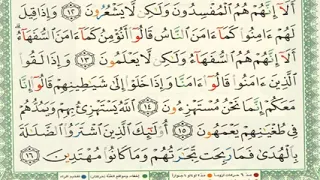 أَلَآ إِنَّهُمْ هُمُ ٱلْمُفْسِدُونَ وَلَٰكِن لَّا يَشْعُرُونَ ١٢ وَإِذَا قِيلَ
لَهُمْ ءَامِنُوا۟ كَمَآ ءَامَنَ ٱلنَّاسُ قَالُوٓا۟ أَنُؤْمِنُ كَمَآ ءَامَنَ ٱلسُّفَهَآءُ
أَلَآ إِنَّهُمْ هُمُ ٱلسُّفَهَآءُ وَلَٰكِن لَّا يَعْلَمُونَ ١٣ وَإِذَا لَقُوا۟
ٱلَّذِينَ ءَامَنُوا۟ قَالُوٓا۟ ءَامَنَّا وَإِذَا خَلَوْا۟ إِلَىٰ شَيَٰطِينِهِمْ قَالُوٓا۟ إِنَّا
مَعَكُمْ إِنَّمَا نَحْنُ مُسْتَهْزِءُونَ ١٤ ٱللَّهُ يَسْتَهْزِئُ بِهِمْ وَيَمُدُّهُمْ
فِى طُغْيَٰنِهِمْ يَعْمَهُونَ ١٥ أُو۟لَٰٓئِكَ ٱلَّذِينَ ٱشْتَرَوُا۟ ٱلضَّلَٰلَةَ
بِٱلْهُدَىٰ فَمَا رَبِحَت تِّجَٰرَتُهُمْ وَمَا كَانُوا۟ مُهْتَدِينَ ١٦